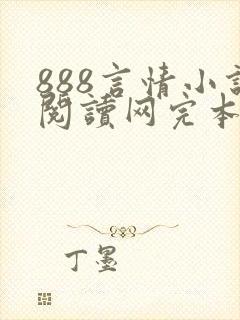 888言情小
閱讀网完本
丁墨